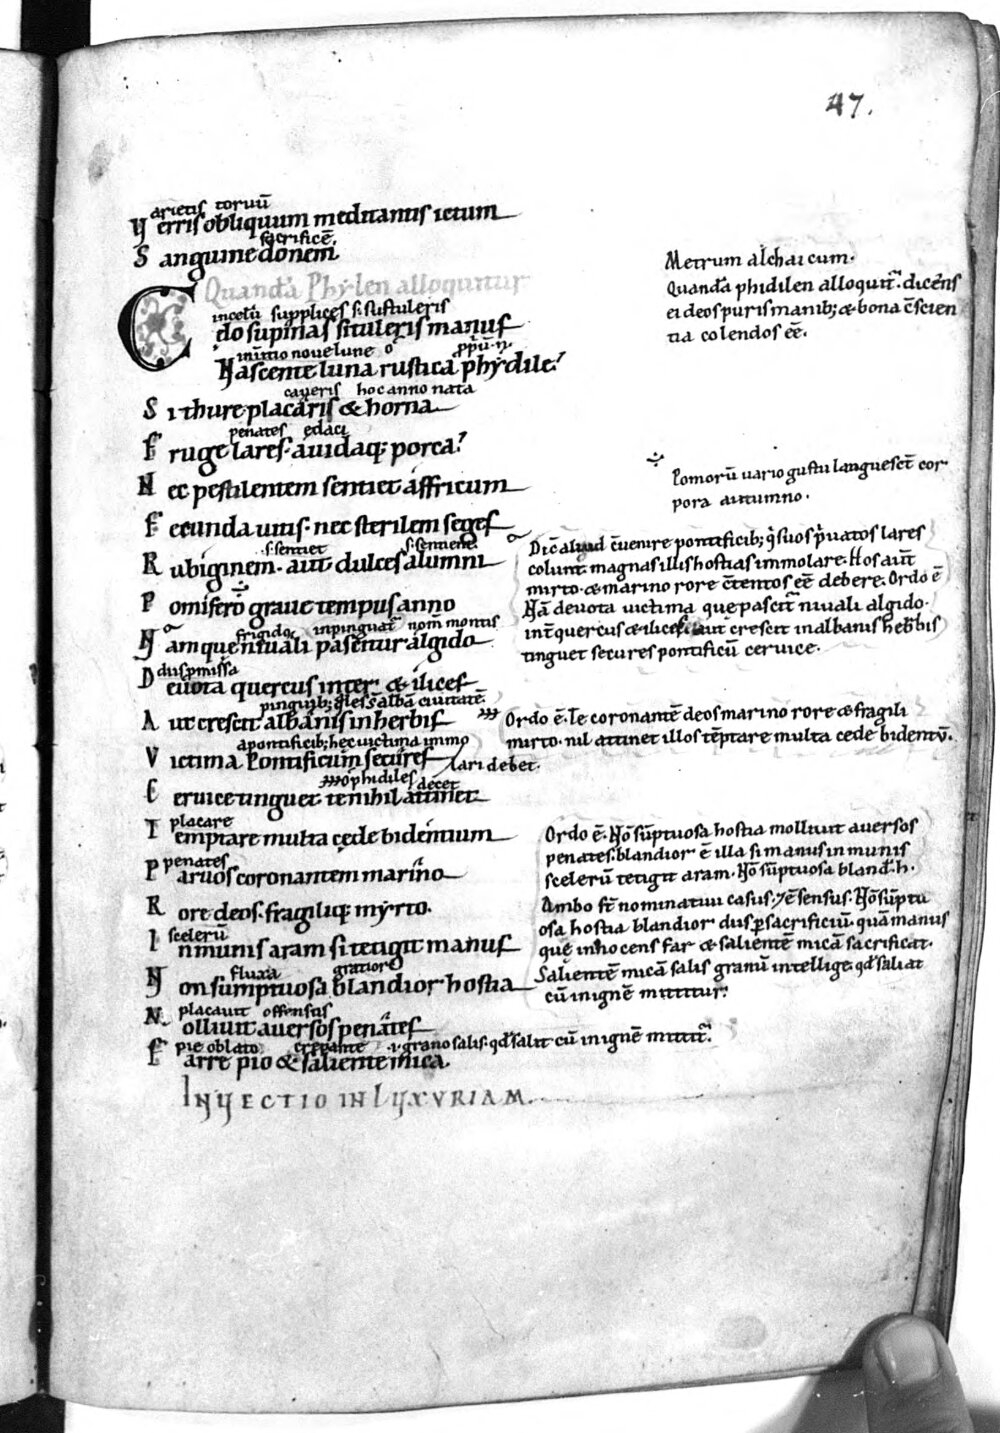 47.
arietis toruū
Verris obliquum meditantis ictum
sacrificē.
Sanguine donem.
Quandā Phylen alloquitur
in celū supplices .s. sustuleris
Cędo supinas si tuleris manus
in initio novę lune o ꝓpriū .n.
Nascente luna rustica phydile.
caneris hoc anno nata
Si thure placaris & horna
penates edaci
Fruge lares. auidaq; porca.
Nec pestilentem sentiet affricum
Fecunda uitis. nec sterilem seges
.s. sentiet .s. sentient
Rubiginem. aut dulces alumni
Pomifero graue tempus anno
frigido inpinguat nom̄ montis
Nam quę niuali pascitur algido
diis ꝓmissa
Deuota quercus inter & ilices
pinguib; albā ciuitatē
Aut crescit albanis in herbis
a pontificib; hęc uictima immo
Victima Pontificum secures
lari debet.
o phidiles decet
Ceruice tinguet te nihil attinet
placare
Temptare multa cęde bidentium
penates
Paruos coronantem marino
Rore deos. fragiliq; myrto.
scelerū
Inmunis aram si tetigit manus
fluxa gratior
Non sumptuosa blandior hostia
placauit offensus
Molliuit auersos penates
pie oblato crepante .i. grano salis. qd̄ salit cū in ignē mittit̄.
Farre pio & saliente mica.
INVECTIO IN LVXVRIAM.
Metrum alchaicum.
Quandā phidilen alloquit̄. dicens
ei deos puris manib; & bona c̄scien
tia colendos eē.
Pomorū uario gustu languesct̄ cor
pora autumno.
Dic̄ aliud c̄uenire pontificib; q̄ suos p̄uatos lares
colunt. magnas illis hostias immolare. Hos aūt
mirto. & marino rore c̄tentos eē debere. Ordo ē
Nā deuota uictima que pascit̄ niuali algido.
int̄ quercus & ilices. aut crescit in albanis herbis
tinguet secures pontificū ceruice.
Ordo ē. Te coronantē deos marino rore & fragili
mirto. nil attinet illos tēptare multa cede bidentū.
Ordo ē. Nō sūptuosa hostia molliuit auersos
penates. blandior ē illa si manus inmunis
scelerū tetigit aram. Nō sūptuosa bland. h.
Ambo st̄ nominatiui casus. 7 ē sensus. Nō sūptu
osa hostia blandior diis ꝑ sacrificiū. quā manus
quę innocens far & salientē micā sacrificat.
Salientē micā salis granū intellige. qd̄ saliat
cū in ignē mittitur.